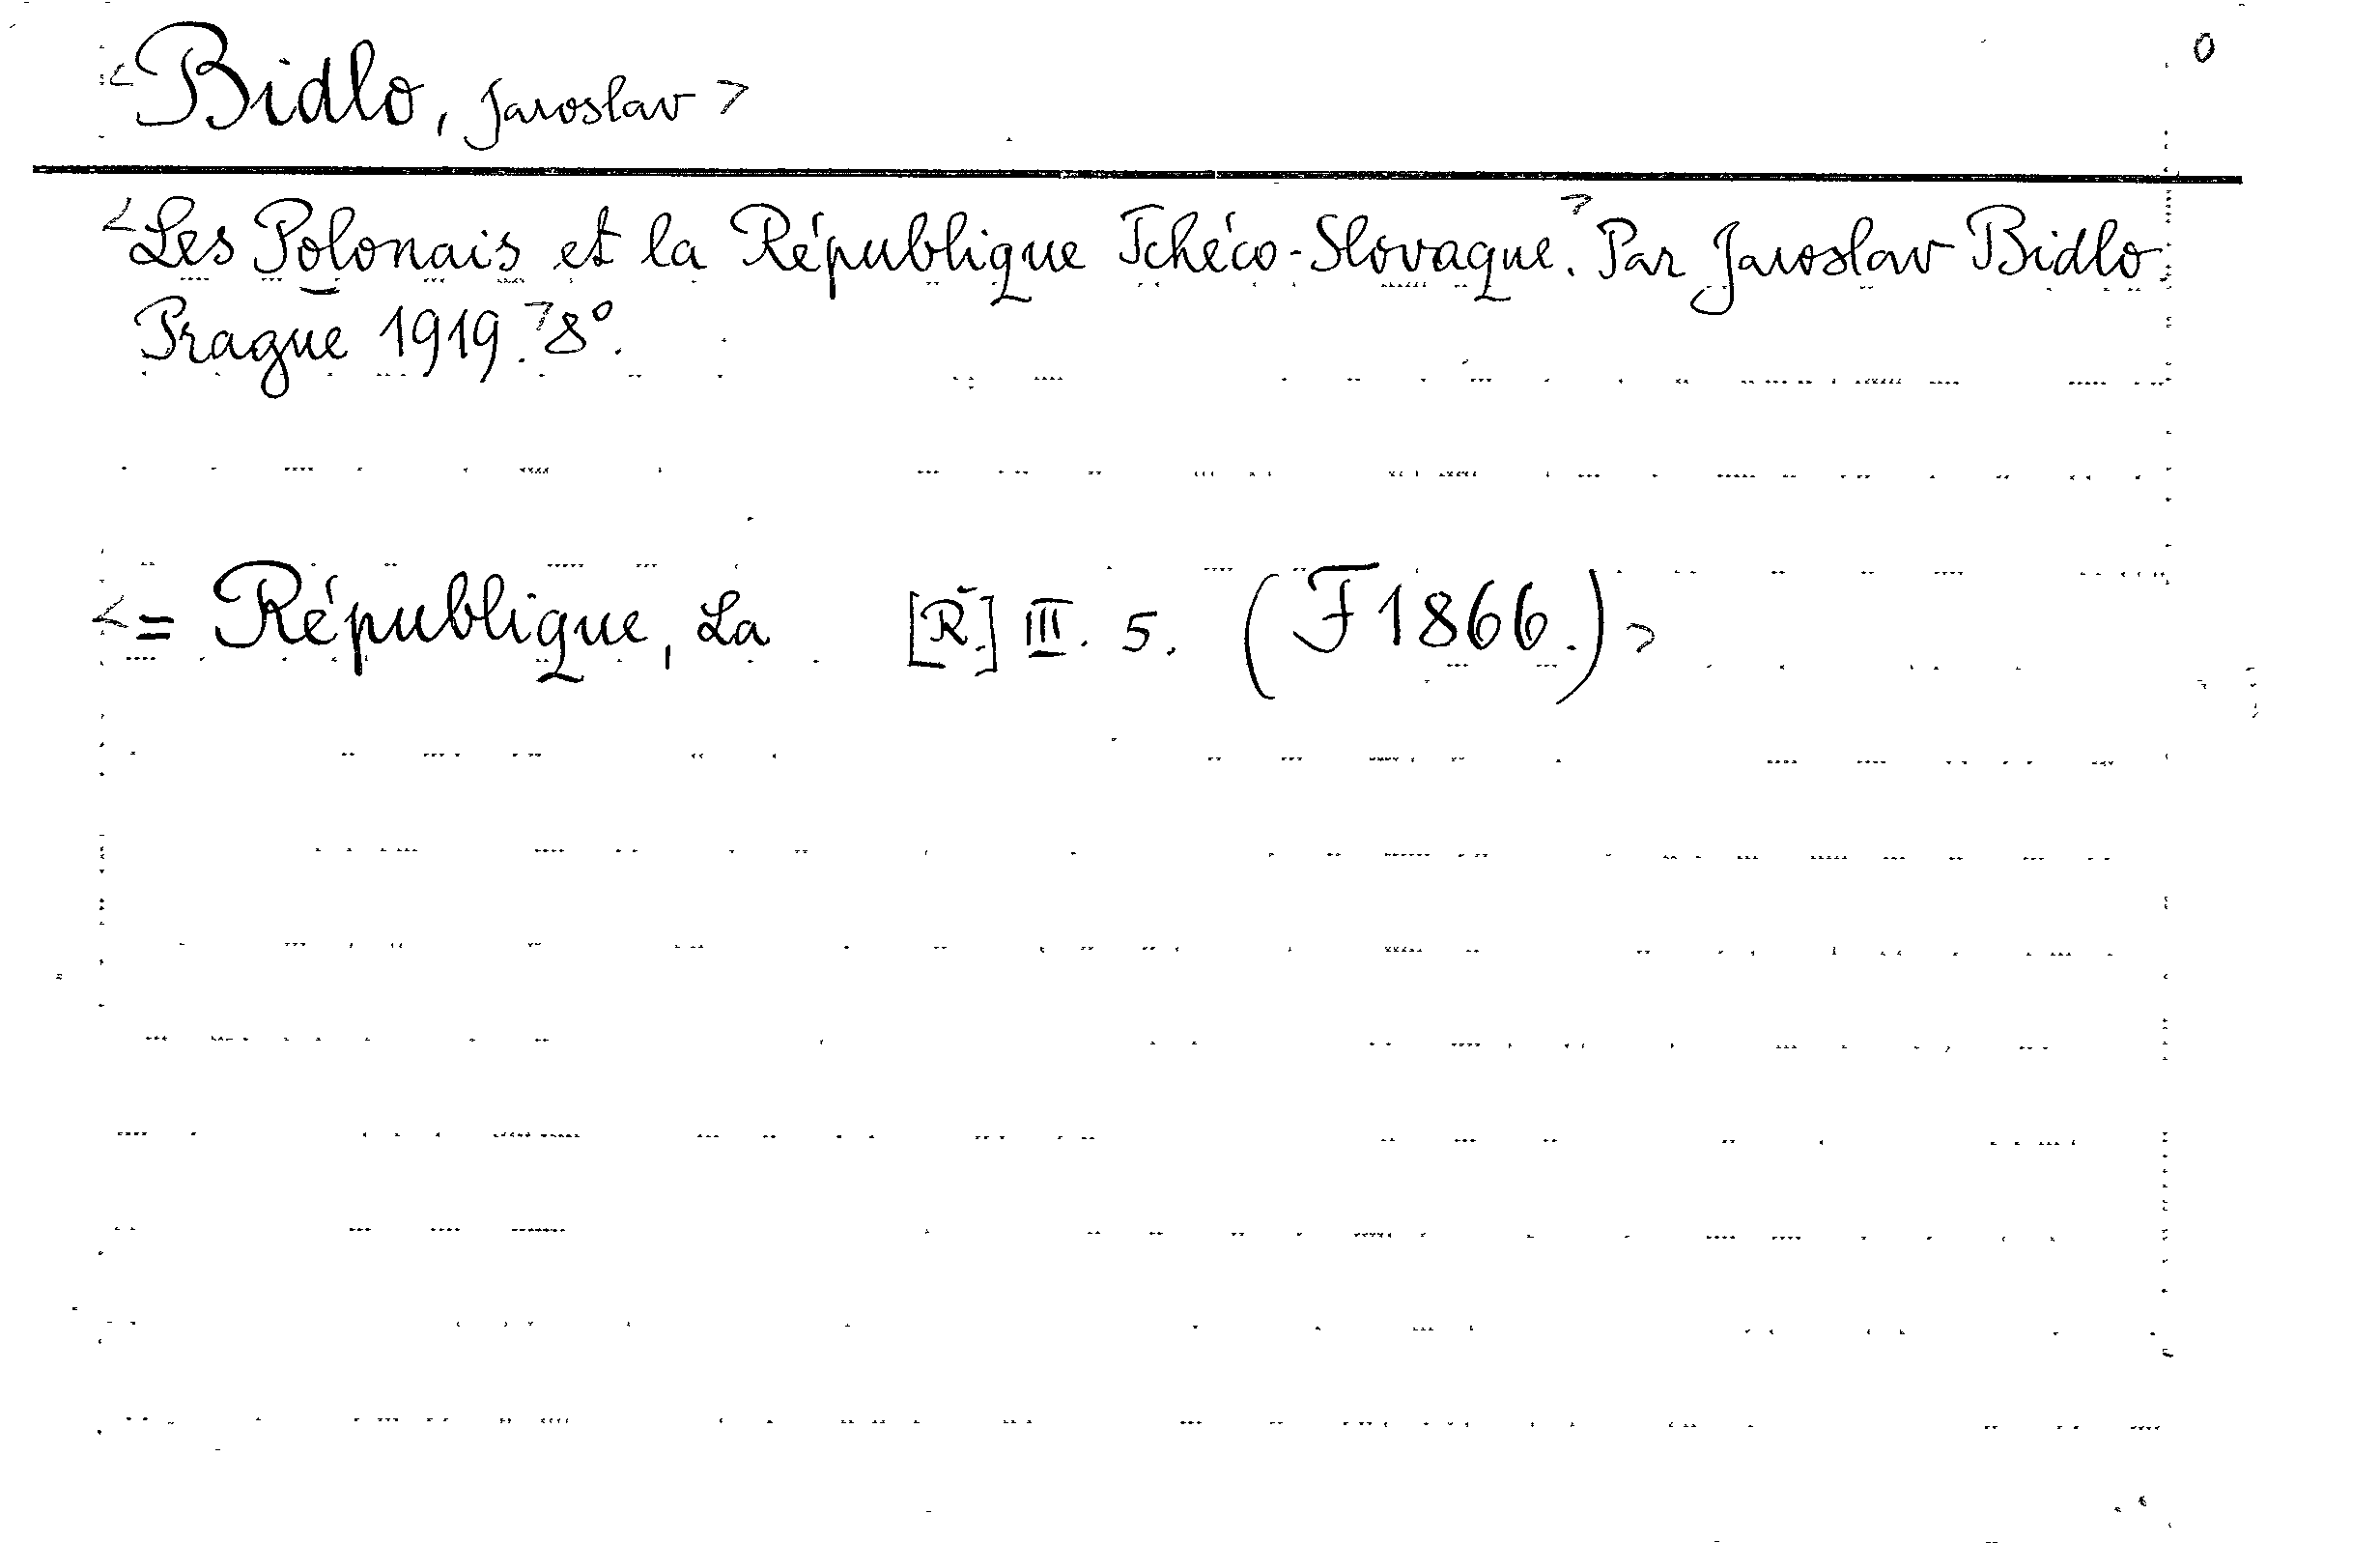 <Bidlo, Jaroslav> 0
<Les Polonais et la République Tchéco-Slovaque.> Par Jaroslav Bidlo.
Prague 1919.> 8°.
<= République, La [R.] III. 5. (F 1866.)>